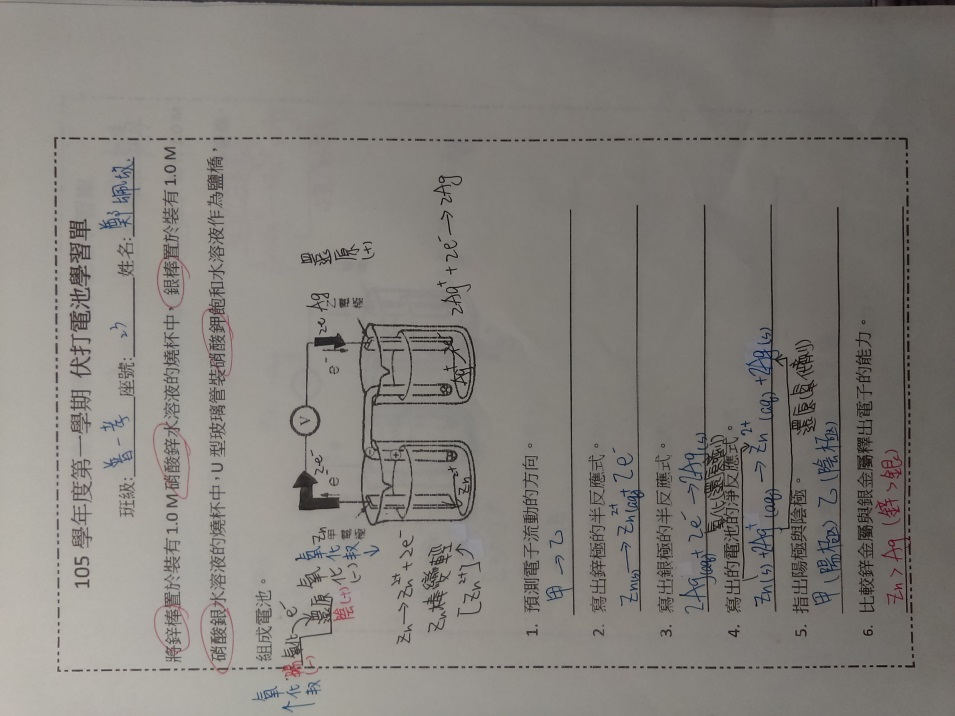 105 學年度第一學期 伏打電池學習單
班級: 普一孝 座號: 23 姓名: 鄭珮
將鋅棒置於裝有 1.0 M 硝酸鋅水溶液的燒杯中、銀棒置於裝有 1.0 M
硝酸銀水溶液的燒杯中,U 型玻璃管裝硝酸鉀飽和水溶液作為鹽橋,
組成電池。
V
2e⁻
e⁻
e⁻
2e⁻
Zn
甲電極
Ag
乙電極
還原
(+)
氧化
(-)
Zn²⁺
Ag⁺
Zn → Zn²⁺ + 2e⁻
2Ag⁺ + 2e⁻ → 2Ag
Zn棒變輕
[Zn²⁺]↑
1. 預測電子流動的方向。
甲 → 乙
2. 寫出鋅極的半反應式。
Zn(s) → Zn²⁺(aq)+ 2e⁻
3. 寫出銀極的半反應式。
2Ag⁺(aq) + 2e⁻ → 2Ag(s)
4. 寫出的電池的淨反應式。
Zn(s) + 2Ag⁺(aq) → Zn²⁺(aq) + 2Ag(s)
5. 指出陽極與陰極。
甲(陽極) 乙(陰極)
6. 比較鋅金屬與銀金屬釋出電子的能力。
Zn > Ag (鋅>銀)